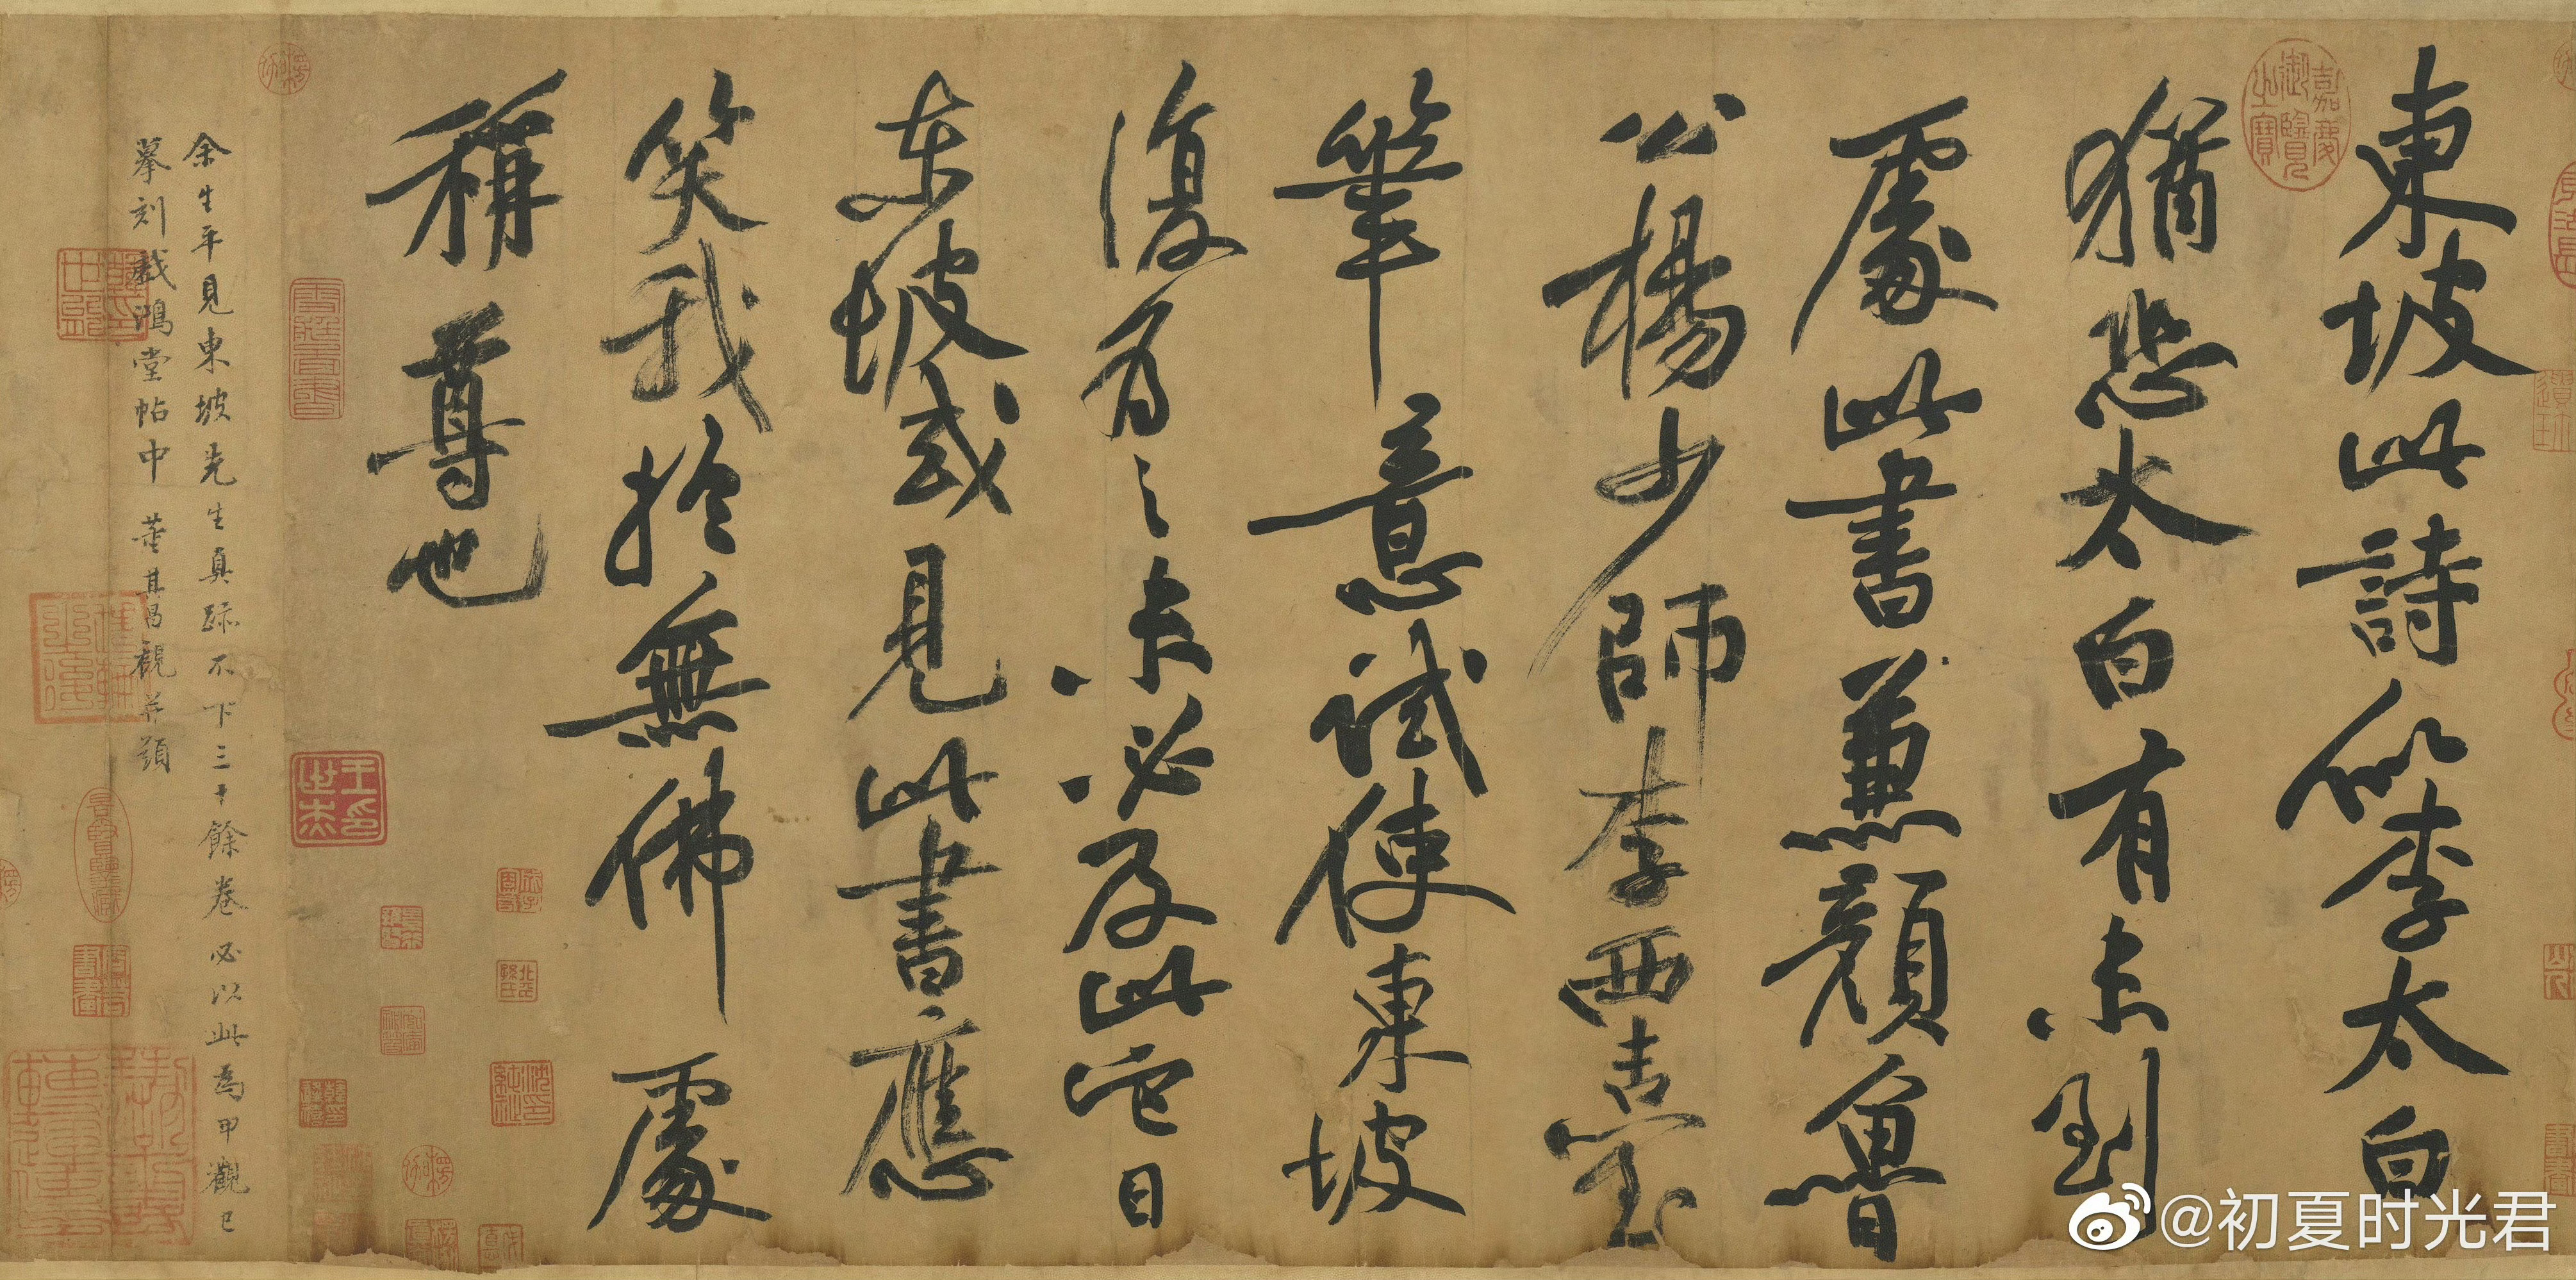 東坡此詩似李太白
猶恐太白有未到
處此書兼顏魯
公楊少師李西臺
筆意試使東坡
復為之未必及此它日
東坡或見此書應
笑我於無佛處
稱尊也
余生平見東坡先生真跡不下三十餘卷必以此為甲觀已
摹刻戲鴻堂帖中 董其昌觀並題
嘉慶御覽之寶
@初夏时光君